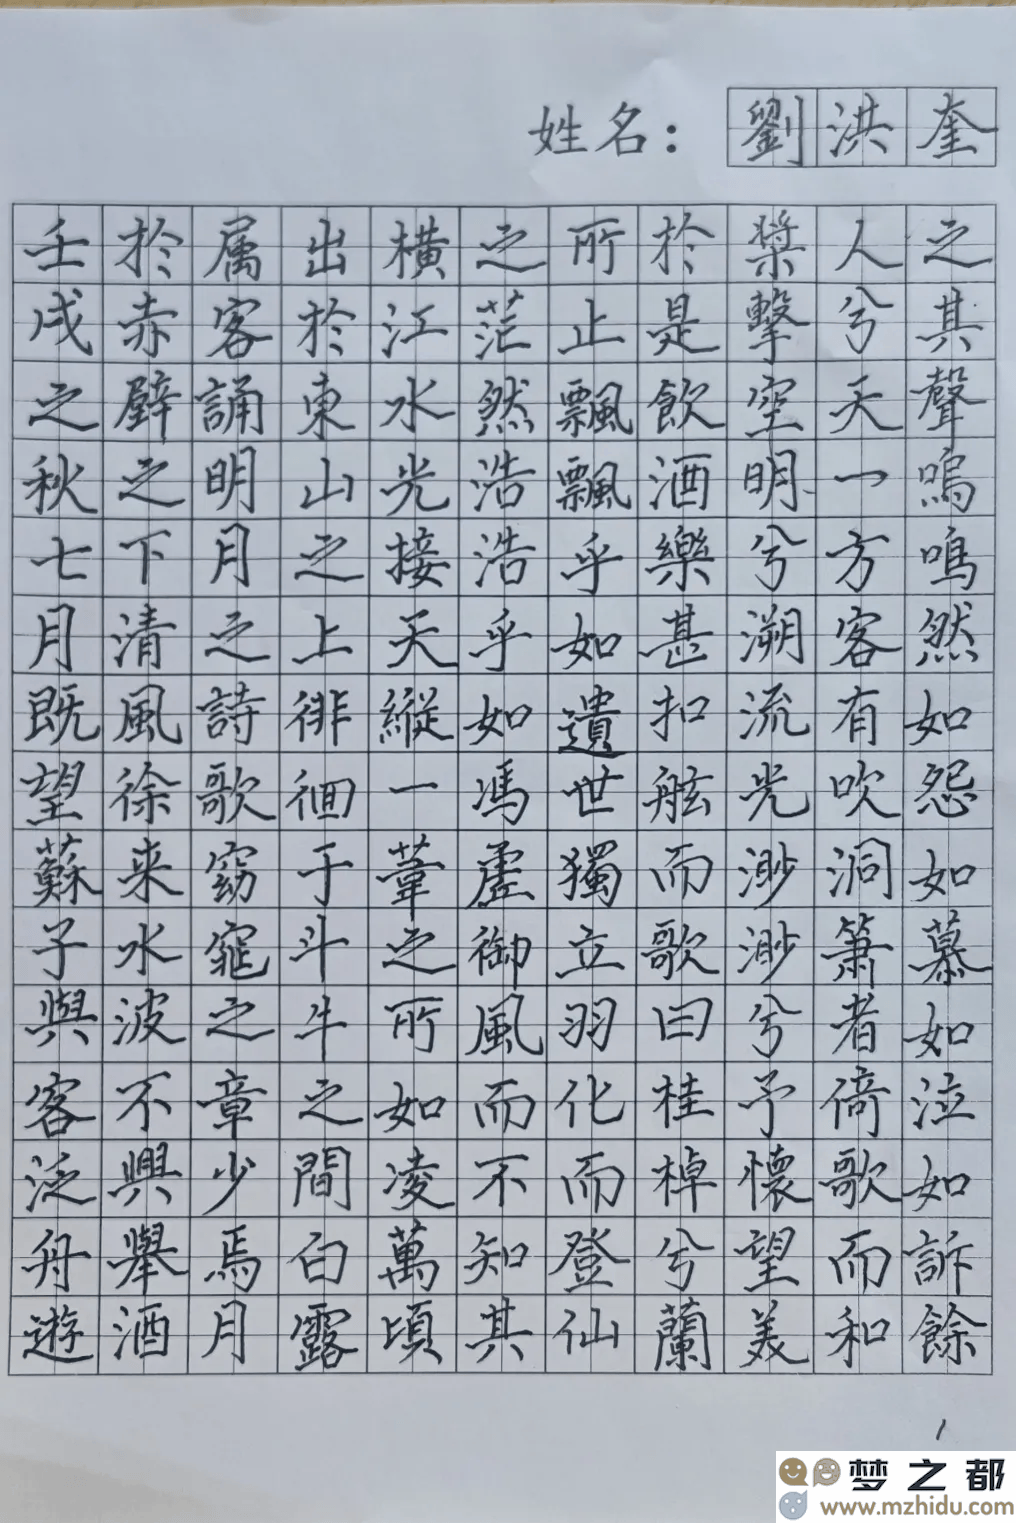 姓名：劉洪奎
壬戌之秋七月既望蘇子與客泛舟遊
於赤壁之下清風徐来水波不興舉酒
属客誦明月之詩歌窈窕之章少焉月
出於東山之上徘徊于斗牛之間白露
橫江水光接天縱一葦之所如凌萬頃
之茫然浩浩乎如馮虛御風而不知其
所止飄飄乎如遺世獨立羽化而登仙
於是飲酒樂甚扣舷而歌曰桂棹兮蘭
槳擊空明兮溯流光渺渺兮予懷望美
人兮天一方客有吹洞簫者倚歌而和
之其聲嗚嗚然如怨如慕如泣如訴餘
1
梦之都
www.mzhidu.com